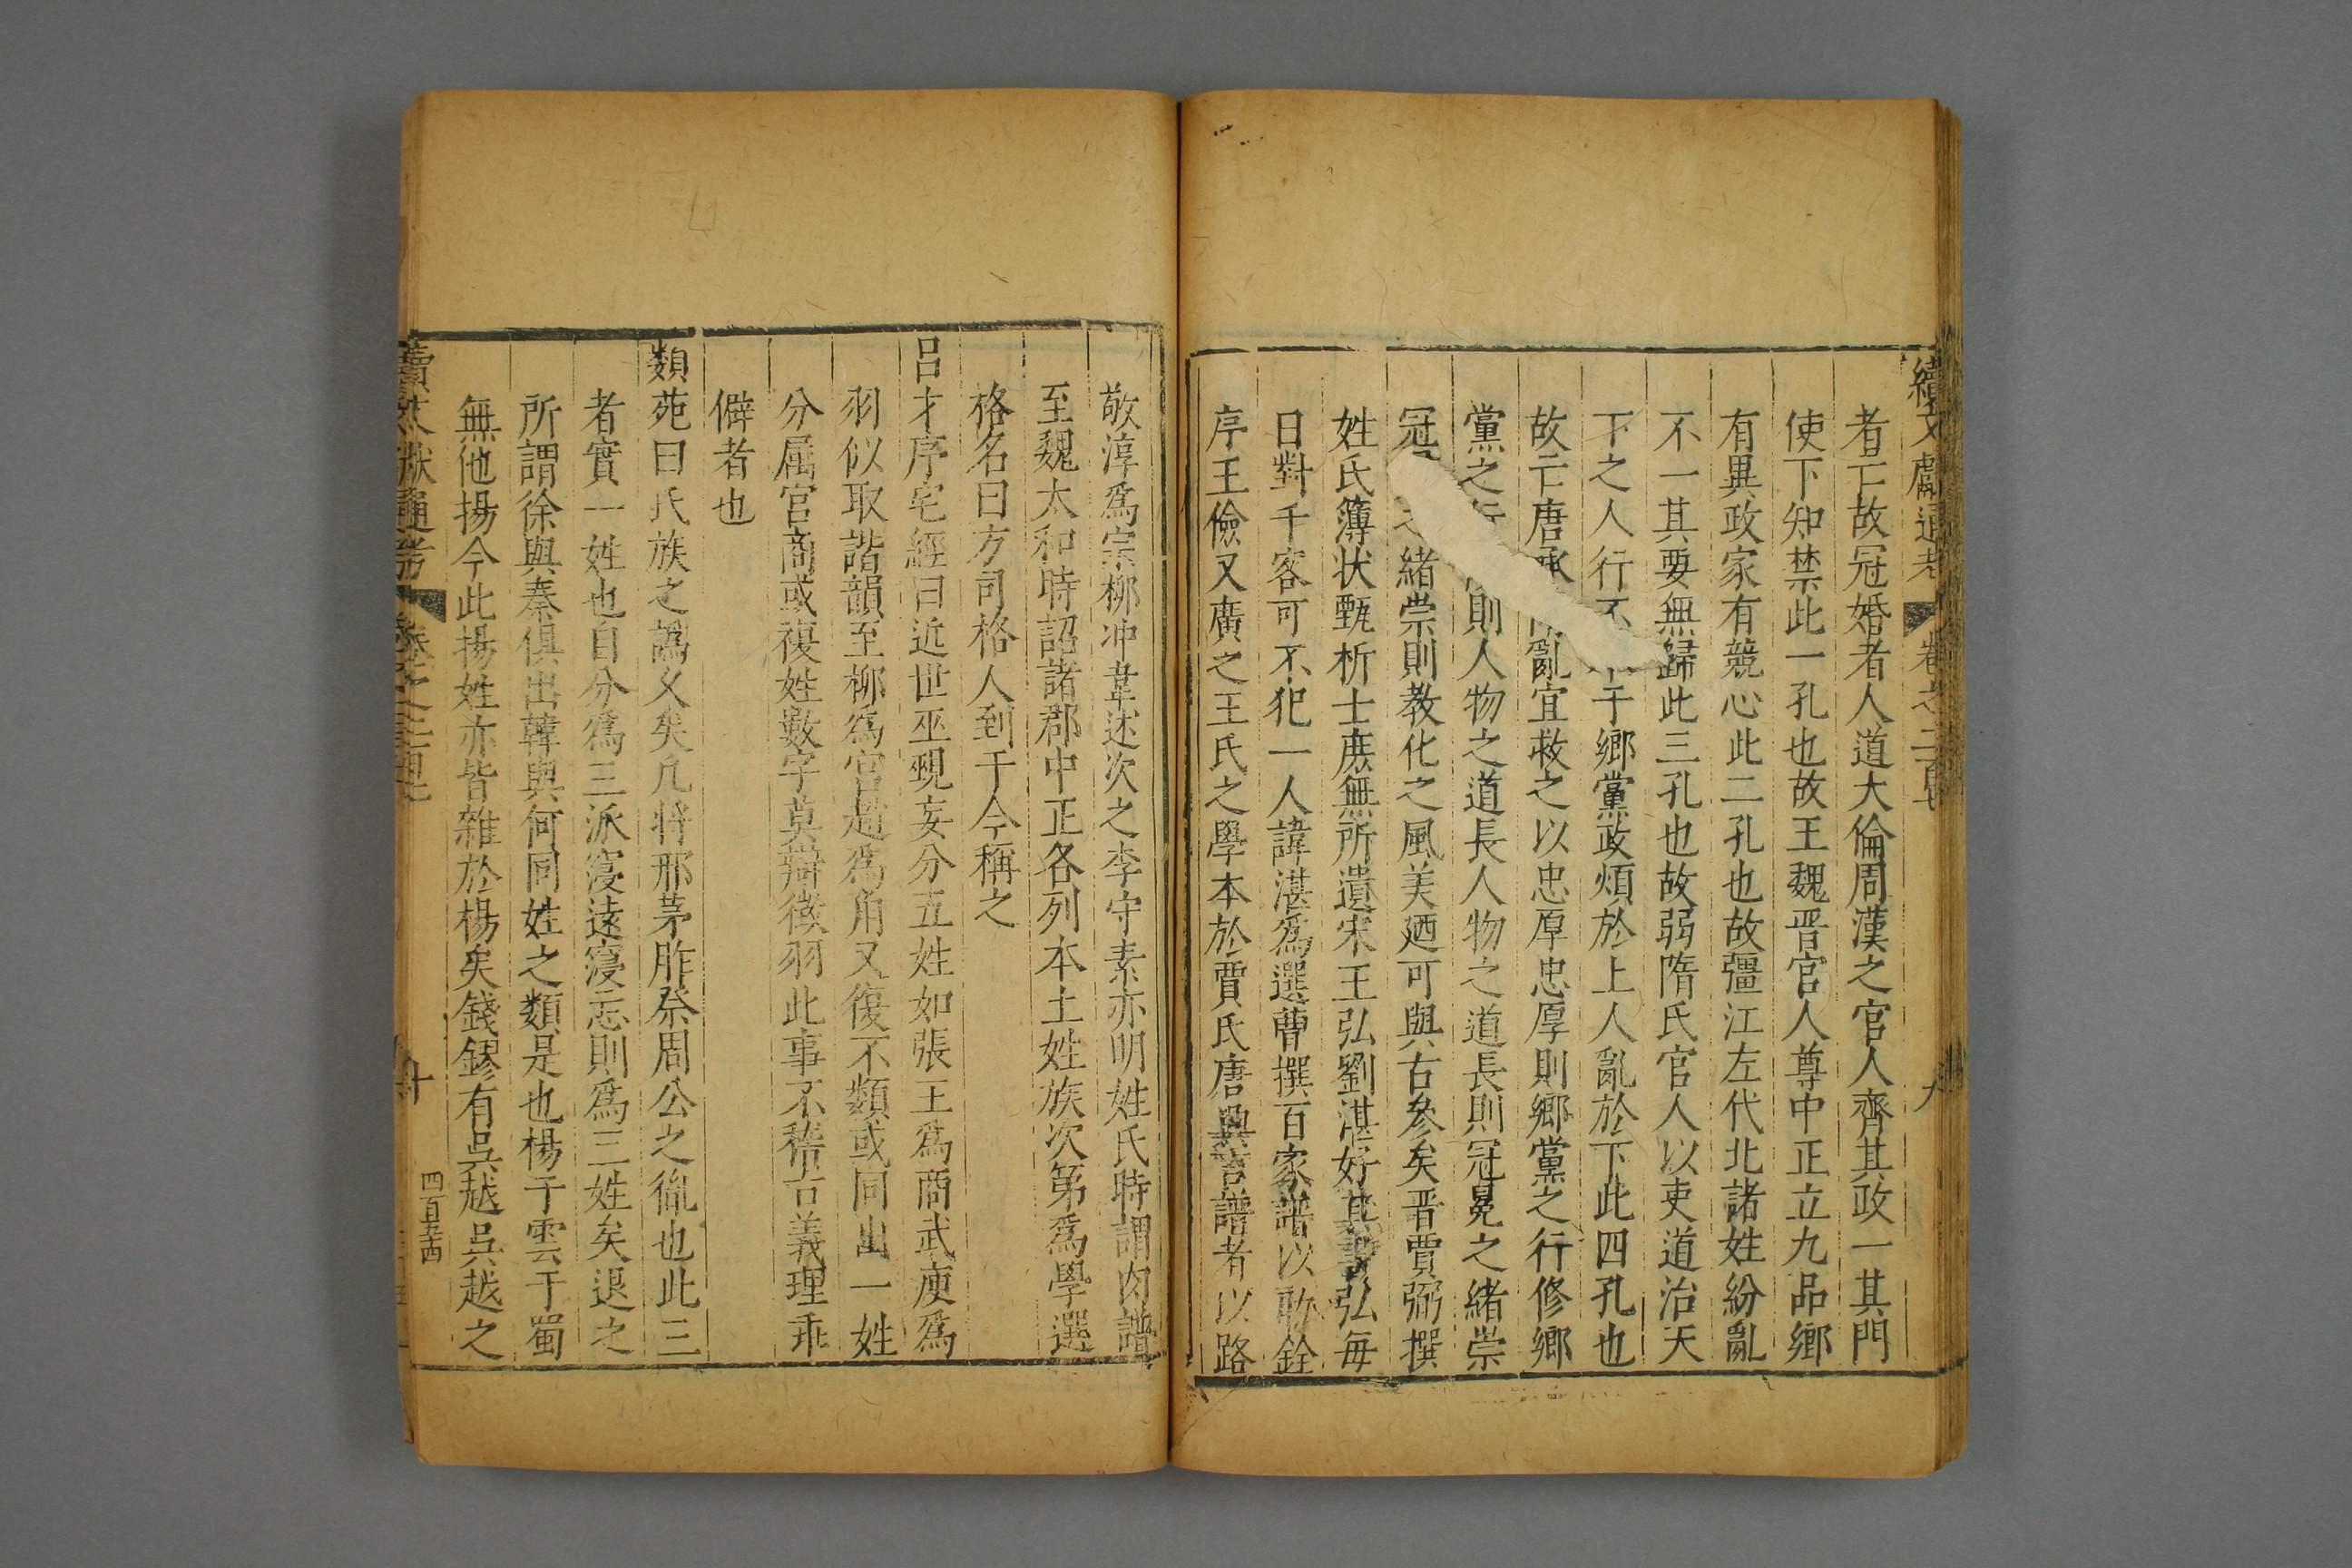 續文獻通考 卷之二百 九
者亡故冠婚者人道大倫周漢之官人齊其政一其門
使下知禁此一孔也故王魏晋官人尊中正立九品鄉
有異政家有競心此二孔也故彊江左代北諸姓紛亂
不一其要無歸此三孔也故弱隋氏官人以吏道治天
下之人行不 于鄉黨政煩於上人亂於下此四孔也
故亡唐承 亂宜救之以忠厚忠厚則鄉黨之行修鄉
黨之行 則人物之道長人物之道長則冠冕之緒崇
冠 之緒崇則教化之風美廼可與古參矣晋賈弼撰
姓氏簿状甄析士庶無所遺宋王弘劉湛好其書弘每
日對千客可不犯一人諱湛為選曹撰百家譜以助銓
序王儉又廣之王氏之學本於賈氏唐興言譜者以路
敬淳為宗柳冲韋述次之李守素亦明姓氏時謂肉譜
至魏太和時詔諸郡中正各列本土姓族次第為學選
格名曰方司格人到于今稱之
吕才序宅經曰近世巫覡妄分五姓如張王為商武庾為
羽似取諧韻至柳為宫趙為角又復不類或同出一姓
分屬宫商或複姓數字莫辯徵羽此事不稽古義理乖
僻者也
類苑曰氏族之譌乆矣凡蒋邢茅胙祭周公之胤也此三
者實一姓也自分為三派寖遠寖忘則為三姓矣退之
所謂徐與秦俱出韓與何同姓之類是也楊子雲于蜀
無他揚今此揚姓亦皆雜於楊矣錢鏐有吳越吳越之
續文獻通考 卷之二百七 十
四百五十四